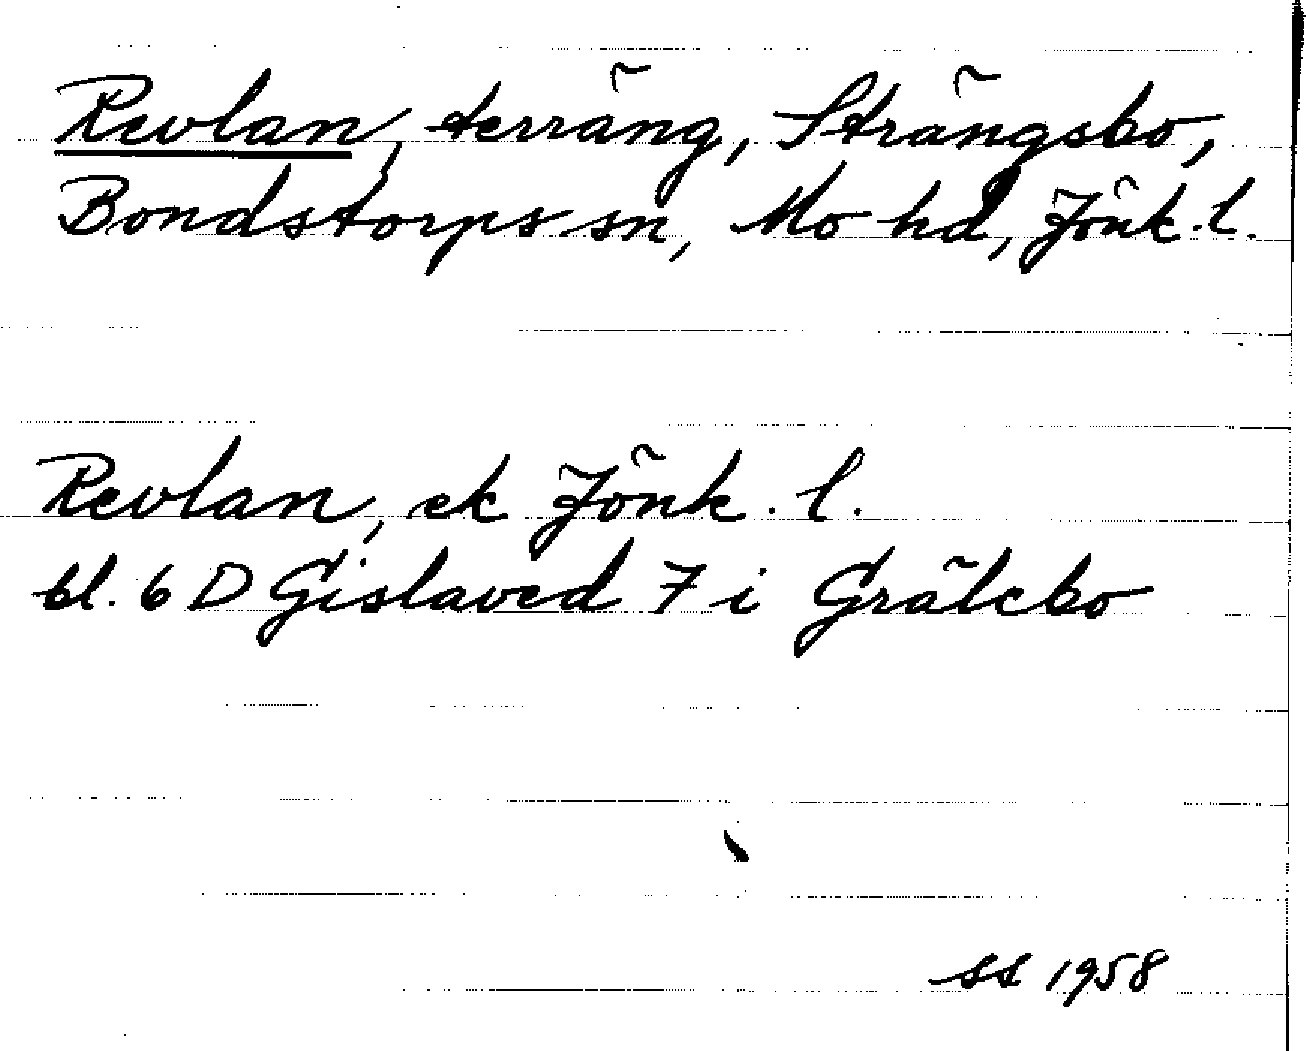 Revlan, terräng, Strängsbo,
Bondstorps sn, Mo hd, Jönk. l.
Revlan, ek Jönk. l.
bl. 6 D Gislaved 7 i Grälebo
ss 1958